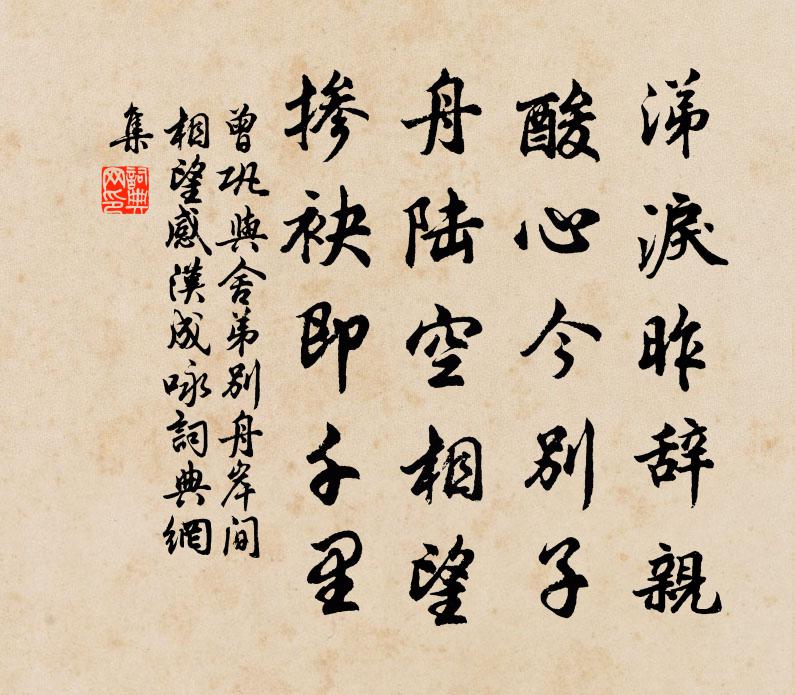 涕淚昨辞親
酸心今別子
舟陆空相望
掺袂即千里
曾巩與舍弟別舟岸间
相望感漢成咏詞典網
集
詞典网印